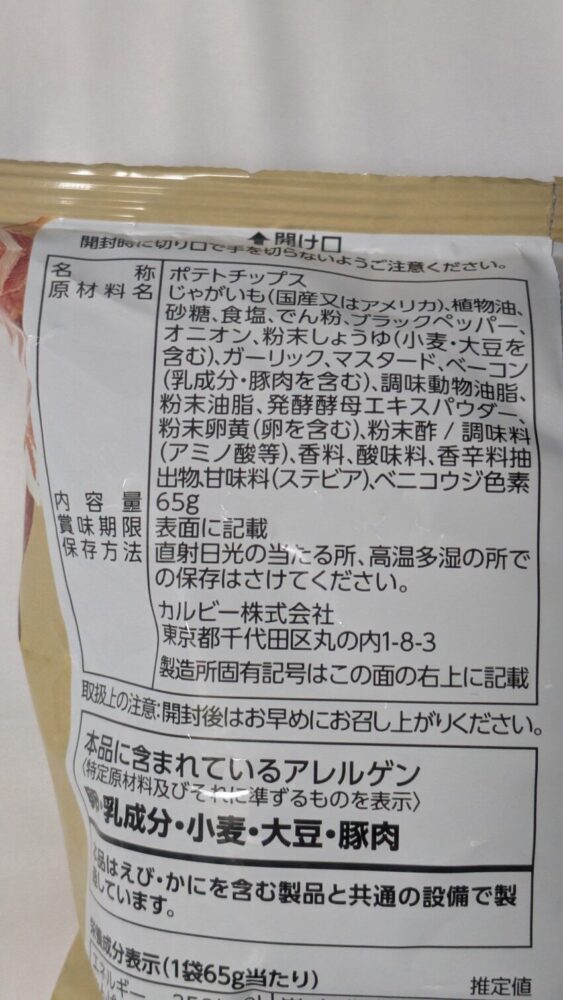 開け口
開封時に切り口で手を切らないようご注意ください。
名称 ポテトチップス
原材料名 じゃがいも(国産又はアメリカ)、植物油、
砂糖、食塩、でん粉、ブラックペッパー、
オニオン、粉末しょうゆ(小麦・大豆を
含む)、ガーリック、マスタード、ベーコン
(乳成分・豚肉を含む)、調味動物油脂、
粉末油脂、発酵酵母エキスパウダー、
粉末卵黄(卵を含む)、粉末酢/調味料
(アミノ酸等)、香料、酸味料、香辛料抽
出物、甘味料(ステビア)、ベニコウジ色素
内容量 65g
賞味期限 表面に記載
保存方法 直射日光の当たる所、高温多湿の所で
の保存はさけてください。
カルビー株式会社
東京都千代田区丸の内1-8-3
製造所固有記号はこの面の右上に記載
取扱上の注意:開封後はお早めにお召し上がりください。
本品に含まれているアレルゲン
〈特定原材料及びそれに準ずるものを表示〉
卵・乳成分・小麦・大豆・豚肉
品はえび・かにを含む製品と共通の設備で製
造しています。
栄養成分表示(1袋65g当たり) 推定値
エネルギー